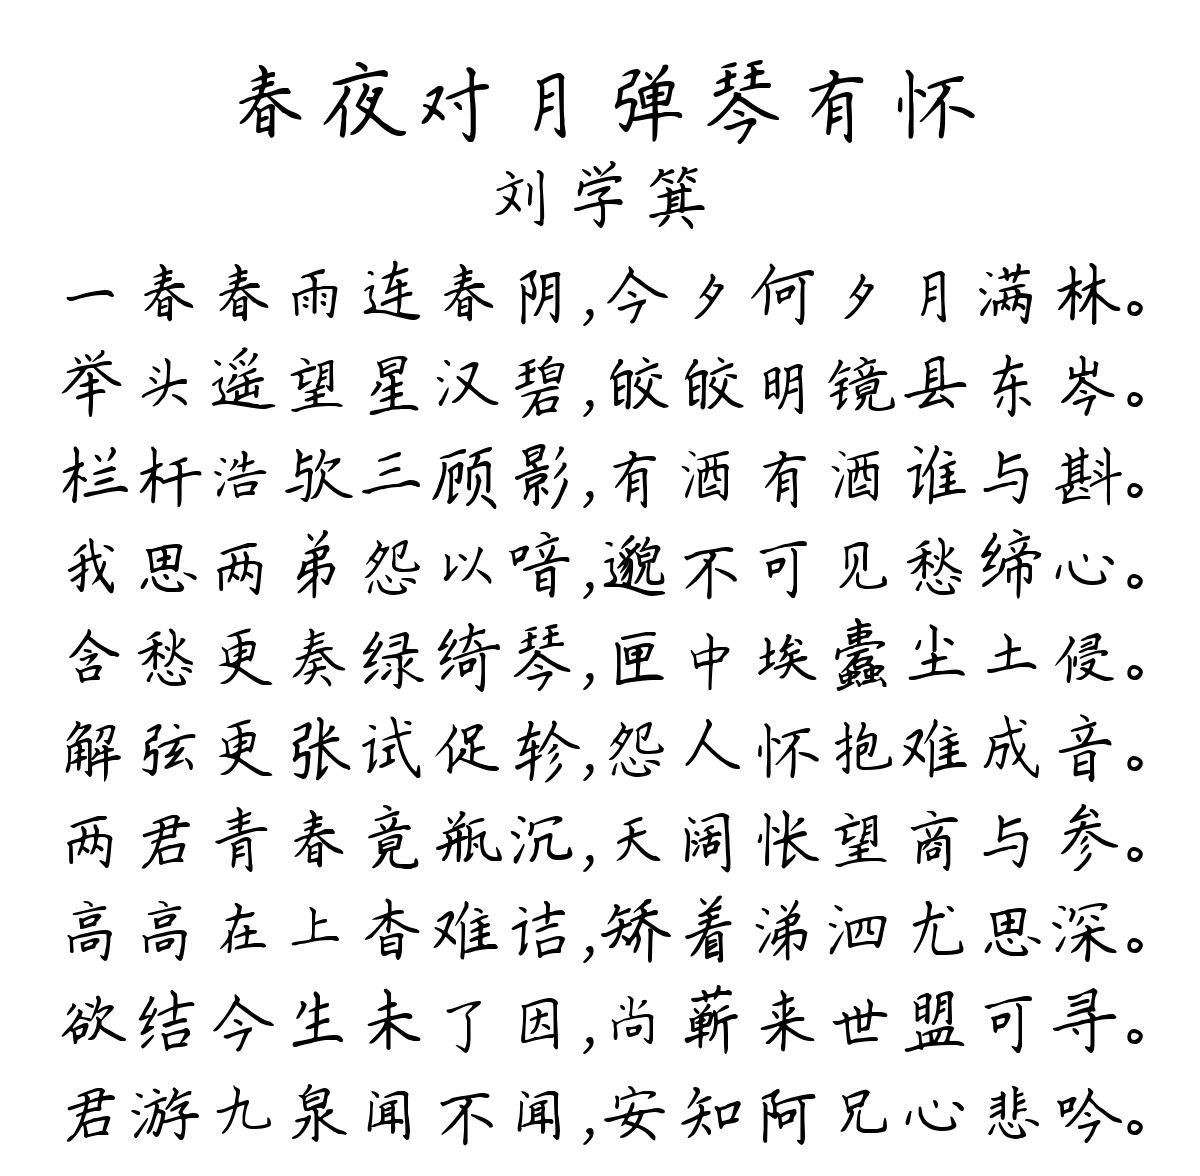 春夜对月弹琴有怀
刘学箕
一春春雨连春阴,今夕何夕月满林。
举头遥望星汉碧,皎皎明镜县东岑。
栏杆浩欤三顾影,有酒有酒谁与斟。
我思两弟怨以喑,邈不可见愁缔心。
含愁更奏绿绮琴,匣中埃蠹尘土侵。
解弦更张试促轸,怨人怀抱难成音。
两君青春竟瓶沉,天阔怅望商与参。
高高在上杳难诘,矫着涕泗尤思深。
欲结今生未了因,尚蕲来世盟可寻。
君游九泉闻不闻,安知阿兄心悲吟。